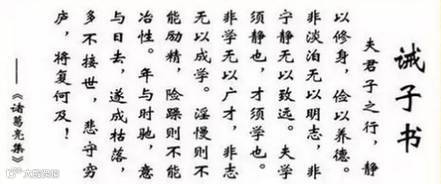 诫子书
夫君子之行，静
以修身，俭以养德。
非淡泊无以明志，非
宁静无以致远。夫学
须静也，才须学也。
非学无以广才，非志
无以成学。淫慢则不
能励精，险躁则不能
冶性。年与时驰，意
与日去，遂成枯落，
多不接世，悲守穷
庐，将复何及！
——《诸葛亮集》